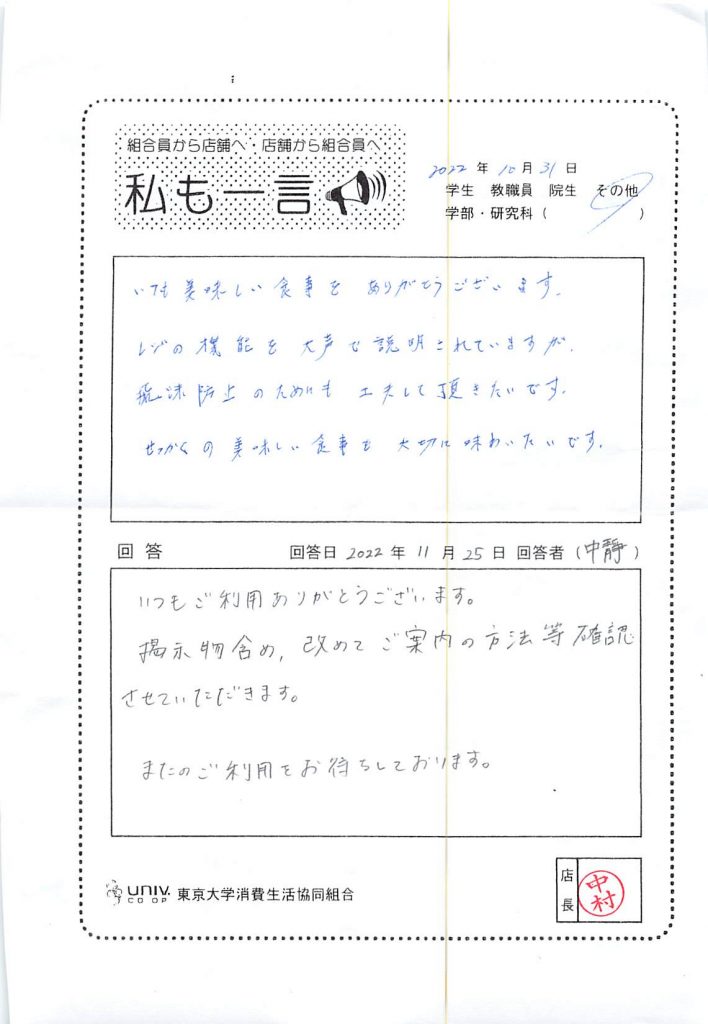 組合員から店舗へ・店舗から組合員へ
私も一言
2022 年 10 月 31 日
学生 教職員 院生 その他
学部・研究科 ( )
いつも美味しい食事をありがとうございます。
レジの機能を大声で説明されていますが、
飛沫防止のためにも工夫して頂きたいです。
せっかくの美味しい食事を大切に味わいたいです。
回答 回答日 2022 年 11 月 25 日 回答者 (中靜)
いつもご利用ありがとうございます。
掲示物含め、改めてご案内の方法等確認
させていただきます。
またのご利用をお待ちしております。
UNIV. CO-OP 東京大学消費生活協同組合
店長 中村